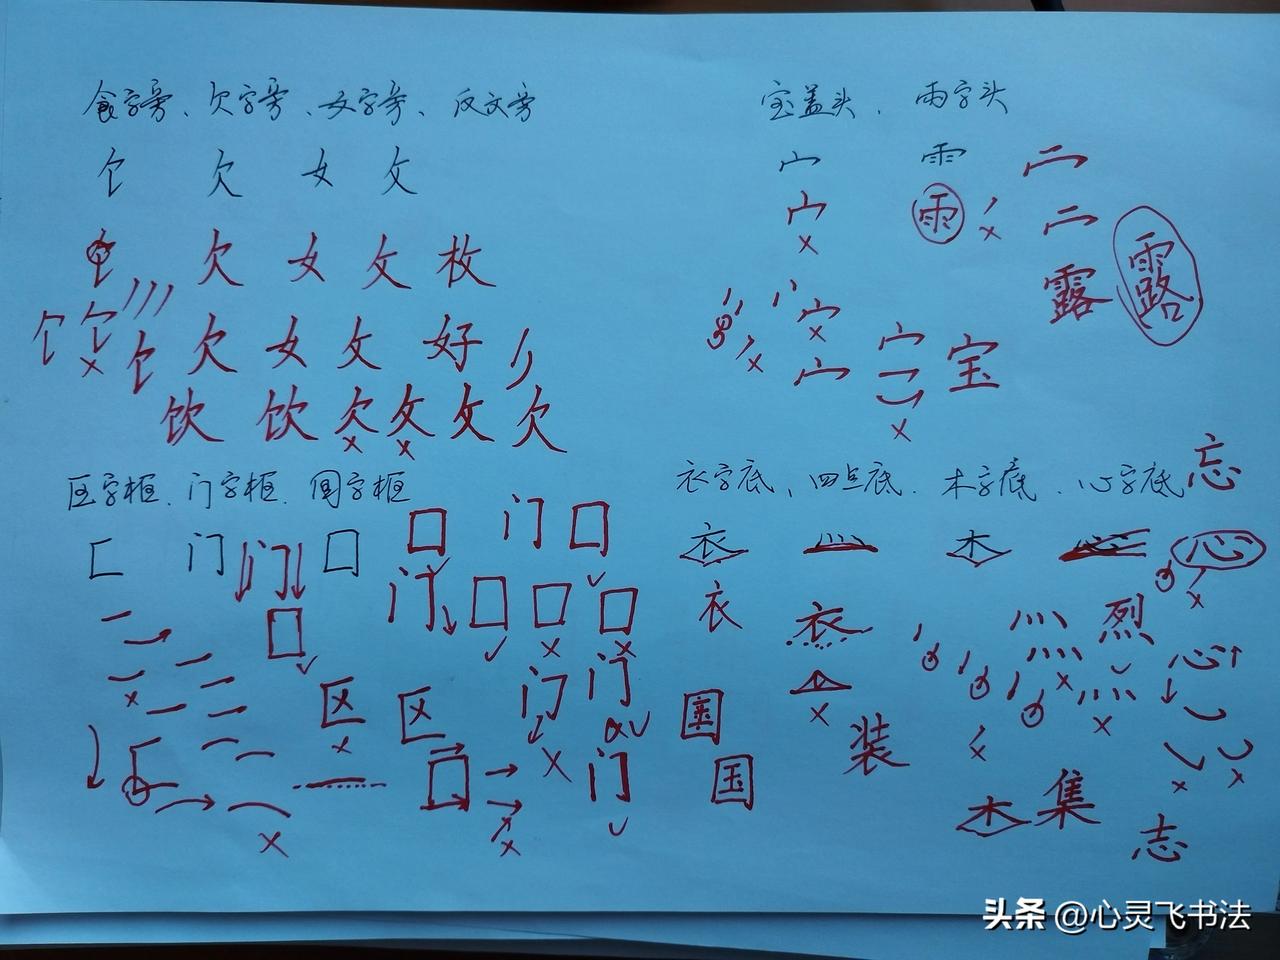 食字旁、欠字旁、女字旁、反文旁
饣 欠 女 攵
欠 女 攵 枚
饣 饣 饣 欠 女 攵 好
饮 饮 欠 攵 攵 欠
宝盖头、雨字头
宀 雨
宀 雨
露 露
宀
宀 宀 宝
区字框、门字框、国字框
匚 门 门 囗 囗 门 囗
门 囗 囗 囗
囗
区 区 门 门
匚 囗 门
国
国
衣字底、四点底、木字底、心字底
忘
衣 灬 木 心 心
衣 衣 灬 烈
灬 灬 心
装
木 集
志
头条 @心灵飞书法